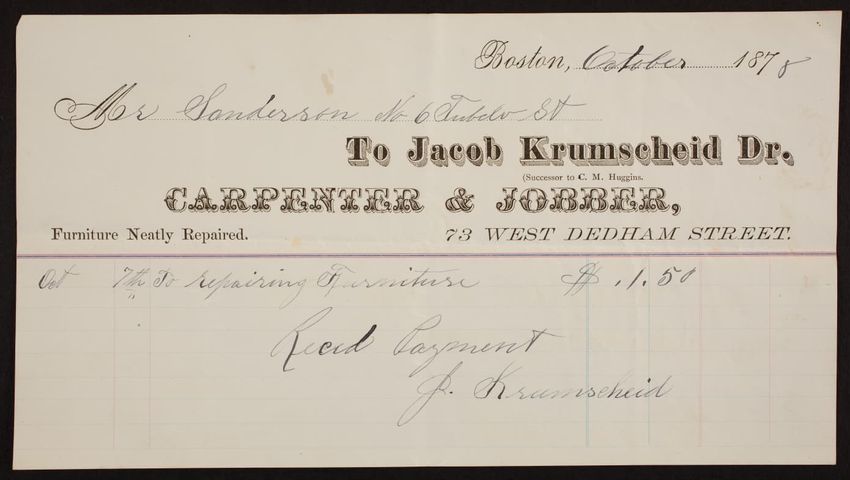 Boston, October 1878
Mr Sanderson No 6 St
To Jacob Krumscheid Dr.
(Successor to C. M. Huggins.
CARPENTER & JOBBER,
Furniture Neatly Repaired. 73 WEST DEDHAM STREET.
Oct 7th To repairing Furniture $ .1.50
Recd Payment
J. Krumscheid